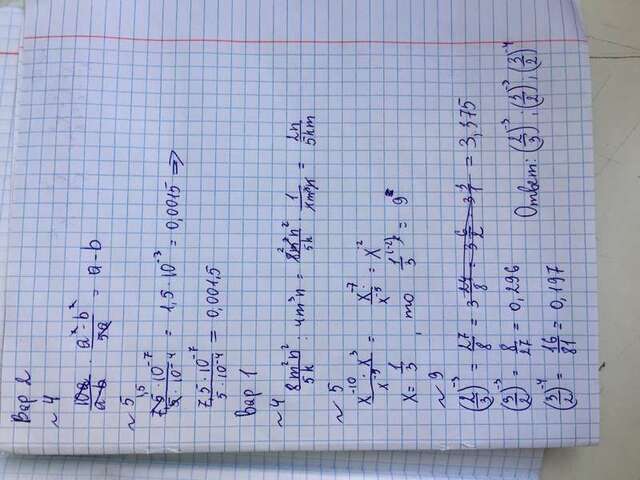 Вар 2
~ 4
10a/(a-b) · (a²-b²)/5a = a-b
~ 5
1,5
7,5·10⁻⁷/5·10⁻⁴ = 1,5·10⁻³ = 0,0015 =>
7,5·10⁻⁷/5·10⁻⁴ = 0,001,5
Вар 1
~ 4
8m²n²/5k : 4m³n = 8m²n²/5k · 1/4m³n = 2n/5km
~ 5
x⁻¹⁰·x³/x⁻⁵ = x⁻⁷/x⁻⁵ = x⁻²
x = 1/3, то 1/3⁽⁻²⁾ = 9
~ 9
(2/3)⁻³ = 27/8 = 3 24/8 = 3 6/2 = 3 3/1 = 3,375
(3/2)⁻³ = 8/27 = 0,296
Ответ: (2/3)⁻³; (3/2)⁻³; (3/2)⁻⁴
(3/2)⁻⁴ = 16/81 = 0,197